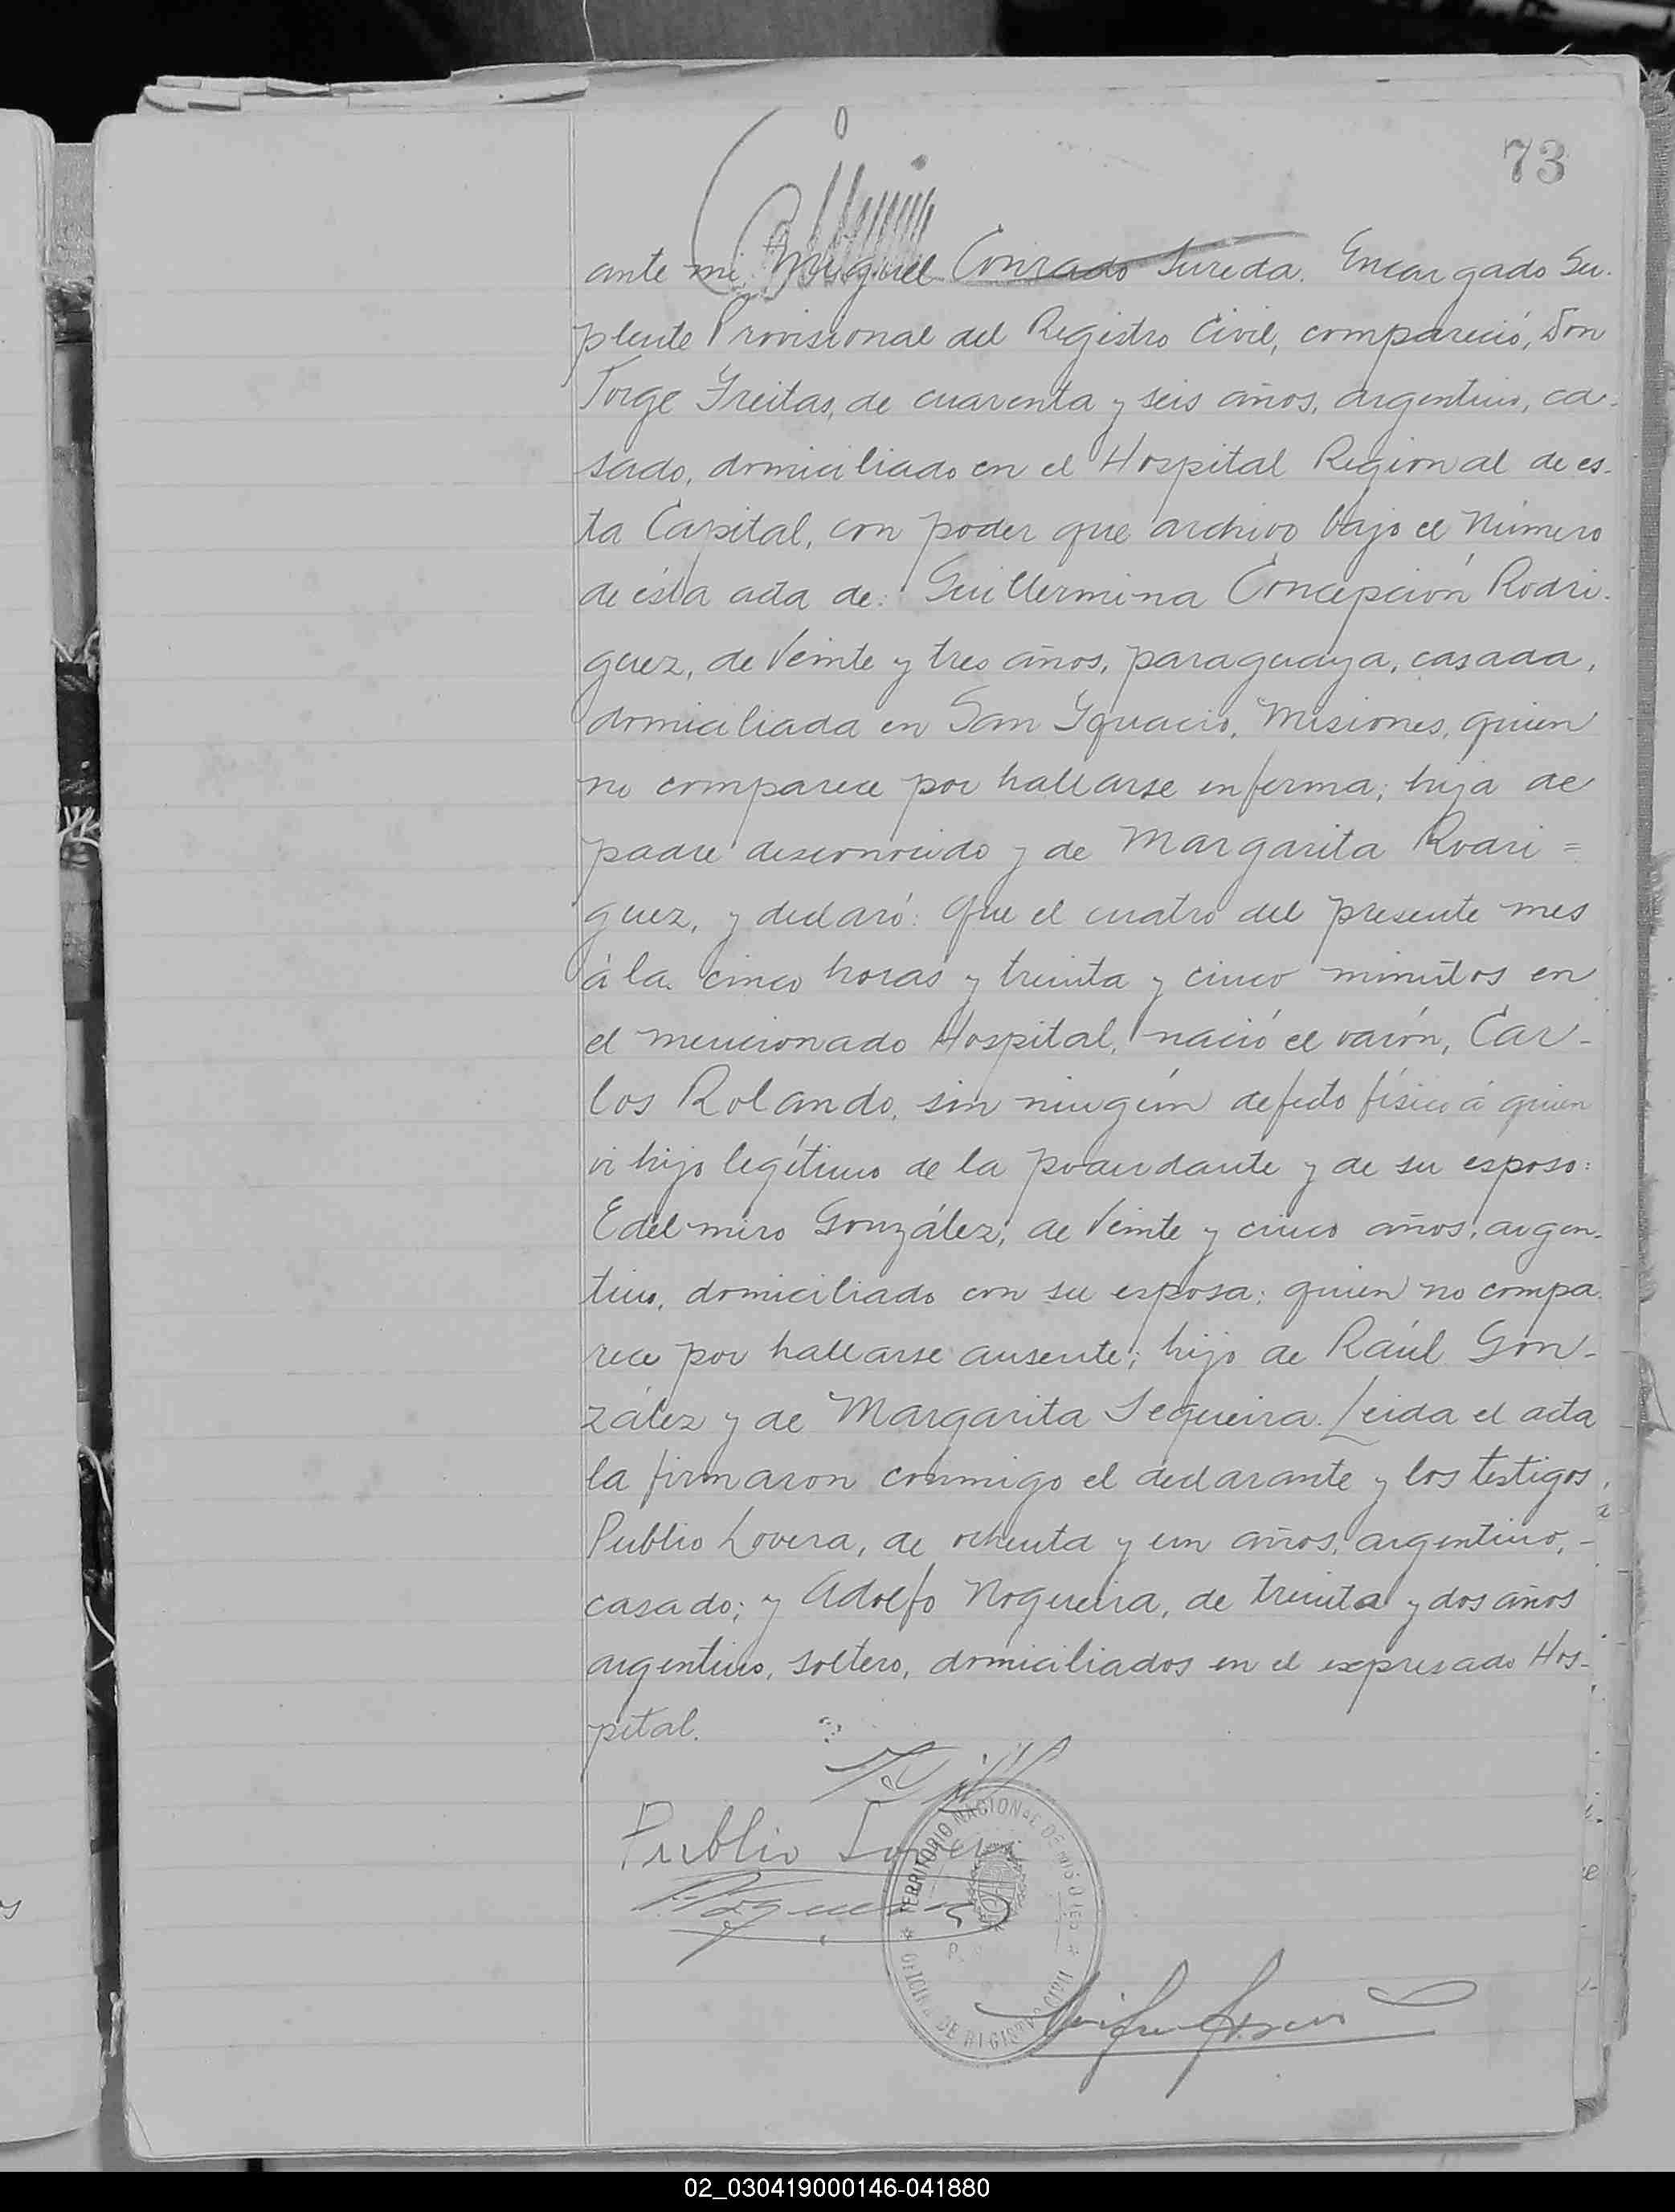 73
ante mi Miguel Conrado Sureda. Encargado Su-
plente Provisional del Registro Civil, compareció, Don
Jorge Freitas, de cuarenta y seis años, argentino, ca-
sado, domiciliado en el Hospital Regional de es-
ta Capital, con poder que archivo bajo el Número
de ésta acta de: Guillermina Concepción Rodri-
guez, de Veinte y tres años, paraguaya, casada,
domiciliada en San Ygnacio, Misiones, quien
no comparece por hallarse enferma; hija de
padre desconocido y de Margarita Rodri=
guez, y declaró: Que el cuatro del presente mes
á la cinco horas y treinta y cinco minutos en
el mencionado Hospital, nació el varón, Car-
los Rolando, sin ningún defecto físico á quien
vi hijo legítimo de la poderdante y de su esposo:
Edelmiro González, de Veinte y cinco años, argen-
tino, domiciliado con su esposa; quien no compa-
rece por hallarse ausente; hijo de Raúl Gon-
zález y de Margarita Sequeira. Leida el acta
la firmaron conmigo el declarante y los testigos
Publio Lovera, de ochenta y un años, argentino, -
casado; y Adolfo Nogueira, de treinta y dos años
argentino, soltero, domiciliados en el expresado Hos-
pital.
Publio Lovera
TERRITORIO NACIONAL DE MISIONES
OFICINA DE REGISTRO CIVIL
02_030419000146-041880